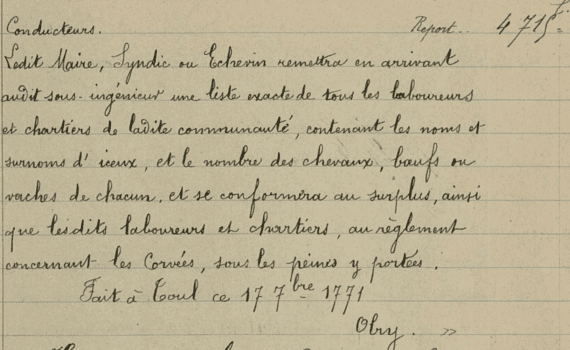 Conducteurs. Report.. 4 715
Ledit Maire, Syndic ou Echevin remettra en arrivant
audit sous-ingénieur une liste exacte de tous les laboureurs
et chartiers de ladite communauté, contenant les noms et
surnoms d'iceux, et le nombre des chevaux, bœufs ou
vaches de chacun. et se conformera au surplus, ainsi
que lesdits laboureurs et chartiers, au règlement
concernant les Corvées, sous les peines y portées.
Fait à Toul ce 17 7bre 1771
Obry. »